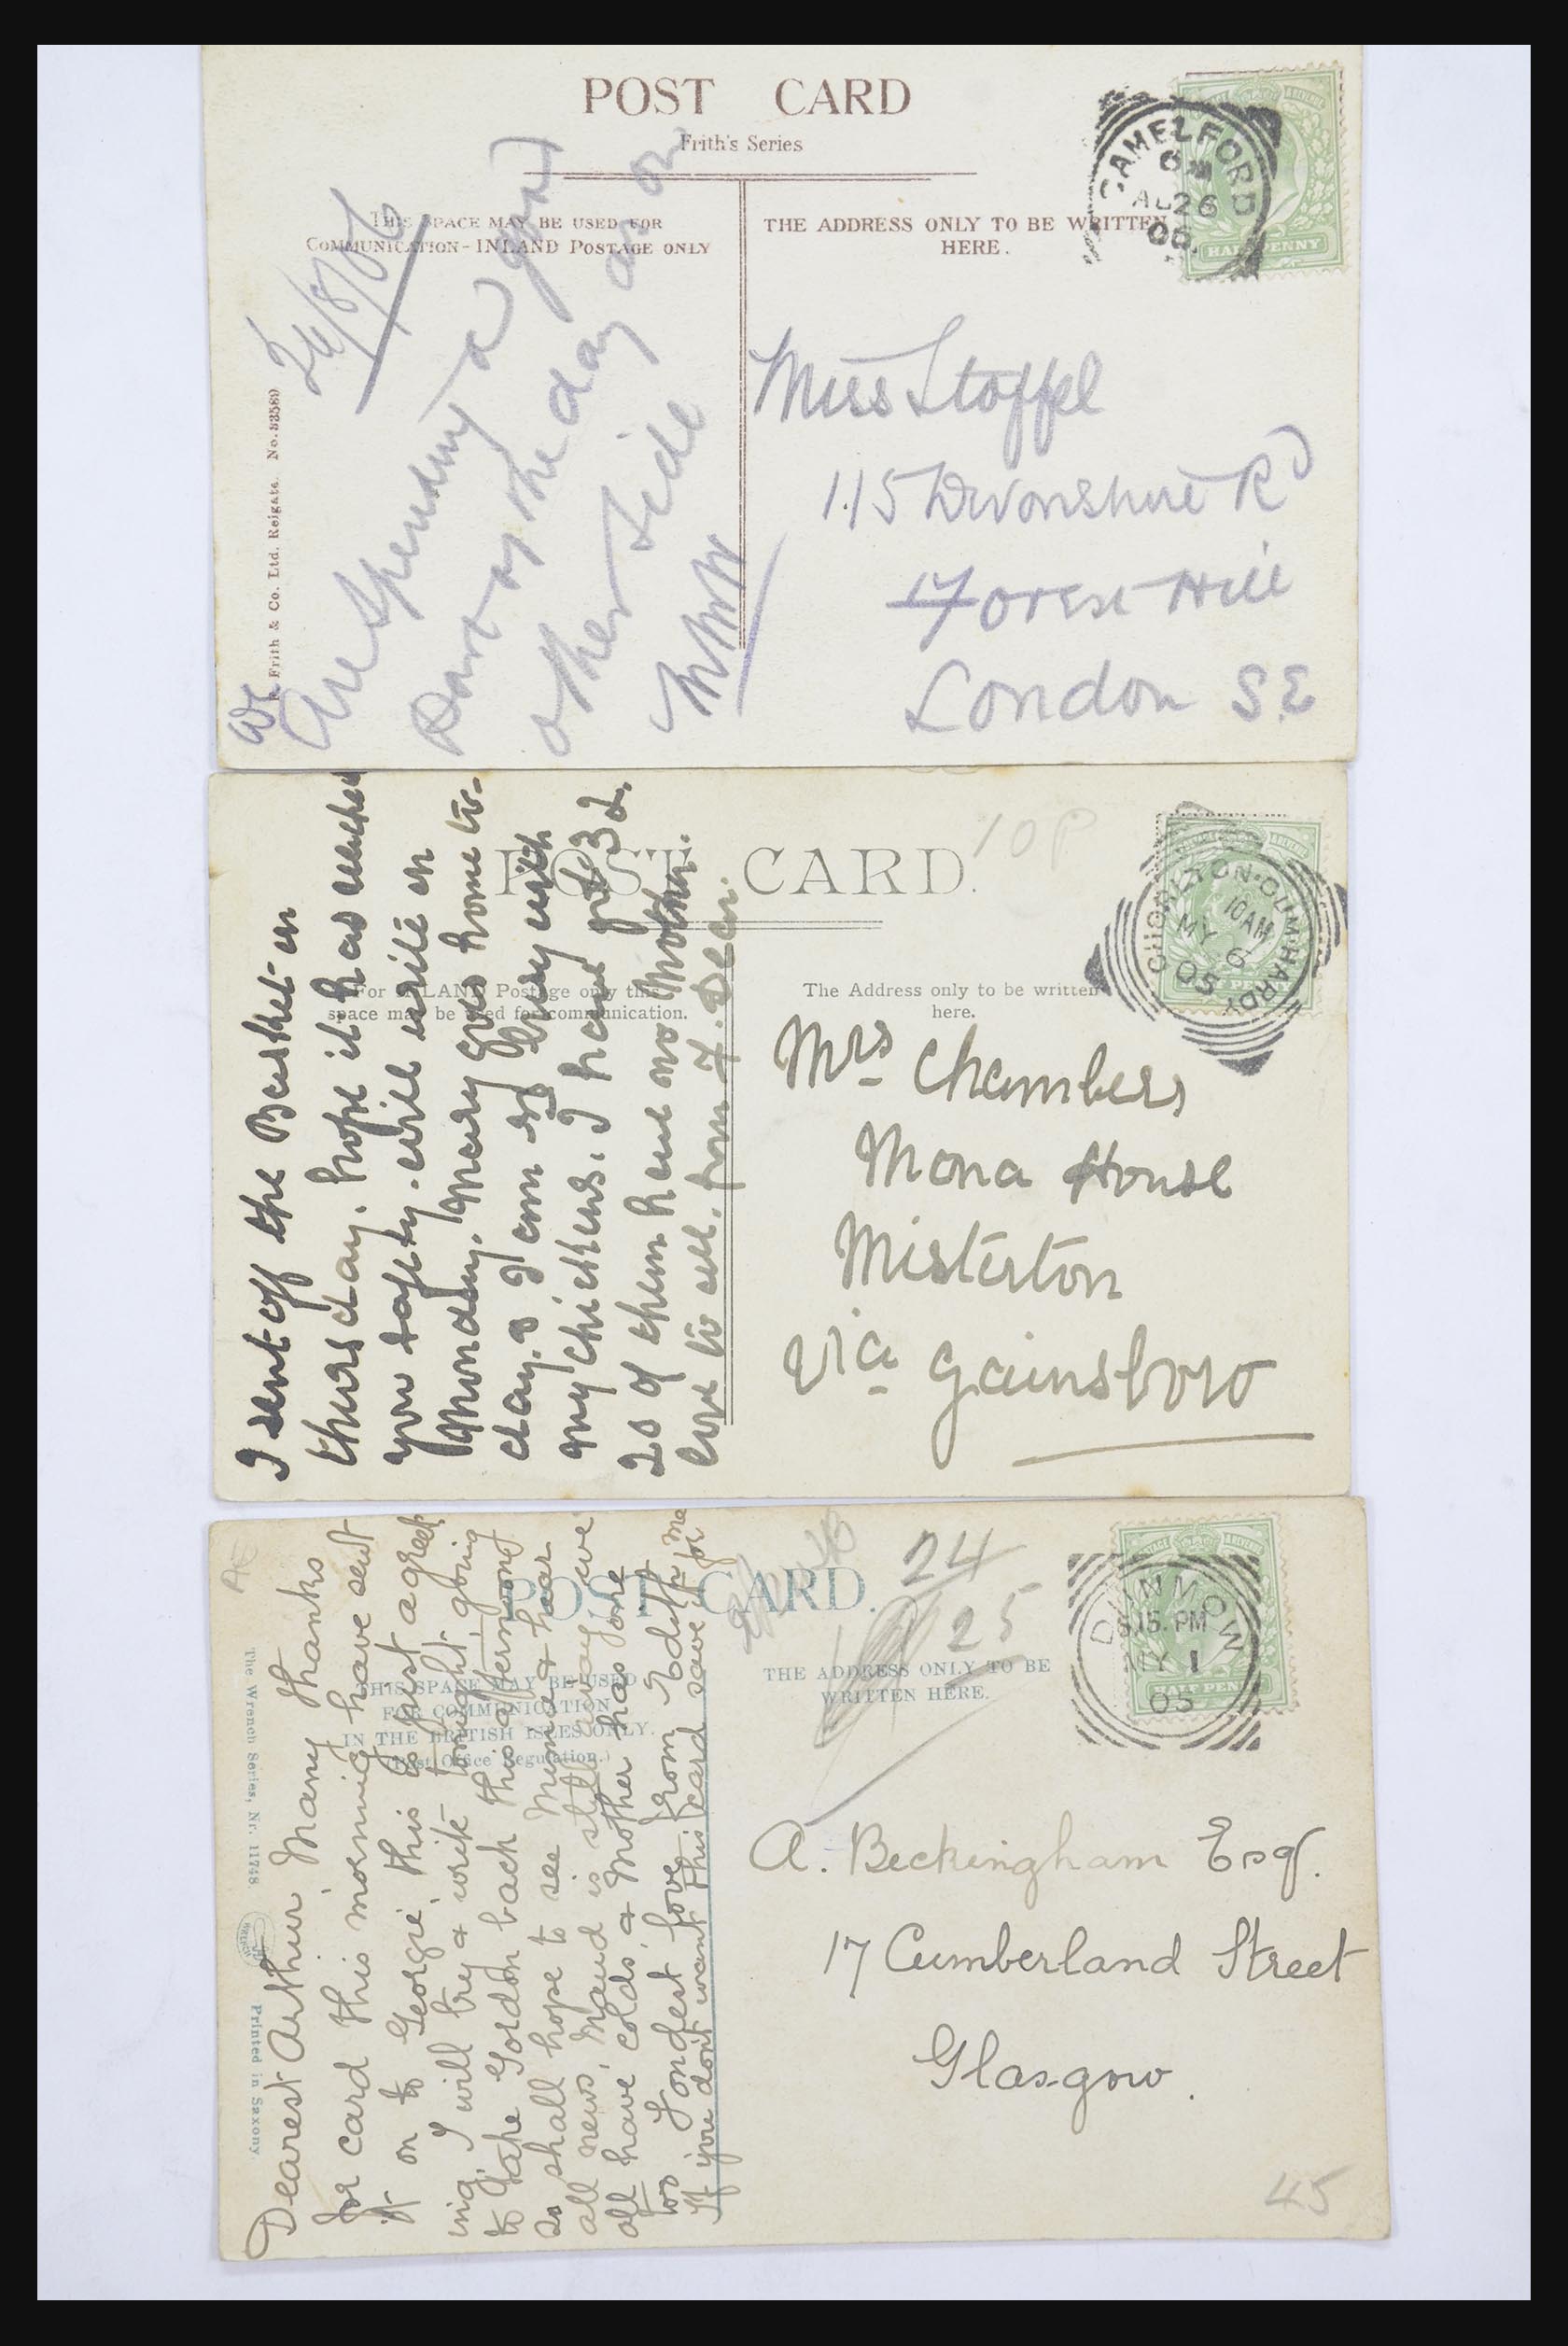 POST CARD
Frith's Series
THIS SPACE MAY BE USED FOR
COMMUNICATION-INLAND POSTAGE ONLY
THE ADDRESS ONLY TO BE WRITTEN
HERE.
F. Frith & Co. Ltd. Reigate. No. 53589
CAMELFORD
AU 26
06
HALFPENNY
26/8/06
We
are spending a good
part of the day on
other side
Miss Stoffel
115 Devonshire Rd
Forest Hill
London S.E
POST CARD.
10P
For INLAND Postage only this
space may be used for communication.
The Address only to be written
here.
CHORLTON-CUM-HARDY
10 AM
MY 6
05
I sent off the Basket on
thursday. hope it has reached
you safely. will write on
Monday. Mary goes home to-
day. & I am so Busy with
my chickens. I have got 32.
20 of them have no Mother.
love to all. from
Mrs Chambers
Mona House
Misterton
via Gainsboro
POST CARD.
24
25
THIS SPACE MAY BE USED
FOR COMMUNICATION
IN THE BRITISH ISLES ONLY.
(Post Office Regulation.)
THE ADDRESS ONLY TO BE
WRITTEN HERE.
The Wrench Series, Nr. 11728.
Printed in Saxony.
DUNMOW
8.15. PM
MY 1
05
HALFPENNY
Dearest Arthur, Many thanks
for card this morning have sent
it on to Georgie, this is just a greet-
ing, I will try & write tonight, going
to take Gordon back this afternoon
so shall hope to see Minna & hear
all news, Maud is still away we
all have colds, & Mother has one
too Fondest love from Edith
If you don't want this card save it for me
A. Beckingham Esq.
17 Cumberland Street
Glasgow.
45